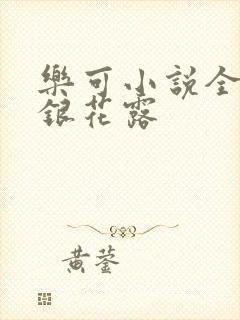 樂可小說全
銀花露
黄蓥